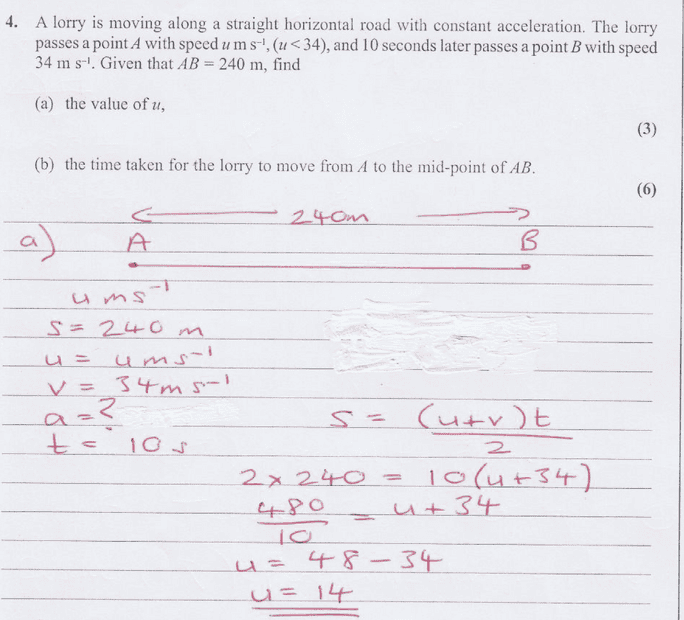 4. A lorry is moving along a straight horizontal road with constant acceleration. The lorry
passes a point A with speed u m s⁻¹, (u < 34), and 10 seconds later passes a point B with speed
34 m s⁻¹. Given that AB = 240 m, find
(a) the value of u,
(3)
(b) the time taken for the lorry to move from A to the mid-point of AB.
(6)
240m
a) A B
u ms⁻¹
s = 240 m
u = u ms⁻¹
v = 34 m s⁻¹
a = ?
t = 10 s
s = (u+v)t / 2
2 x 240 = 10(u+34)
480 / 10 = u + 34
u = 48 - 34
u = 14